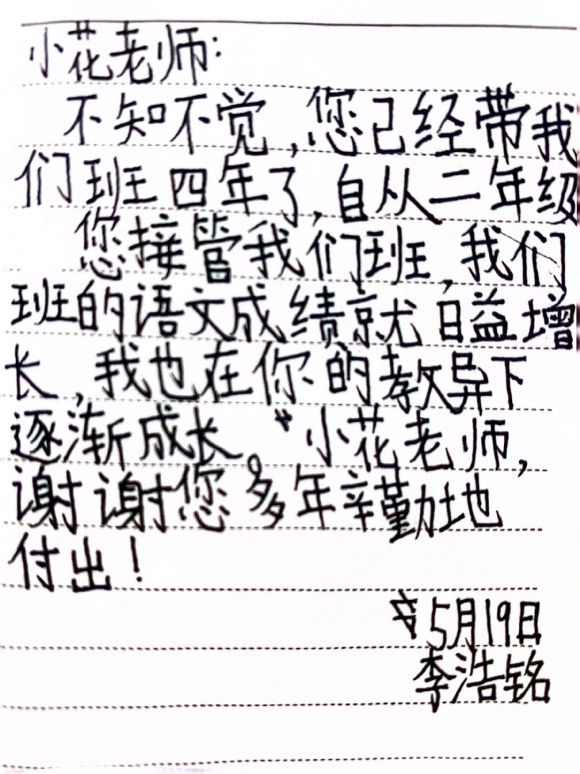 小花老师:
不知不觉,您已经带我
们班四年了,自从二年级
您接管我们班,我们
班的语文成绩就日益增
长,我也在你的教导下
逐渐成长。"小花老师,
谢谢您多年辛勤地
付出!
5月19日
李浩铭